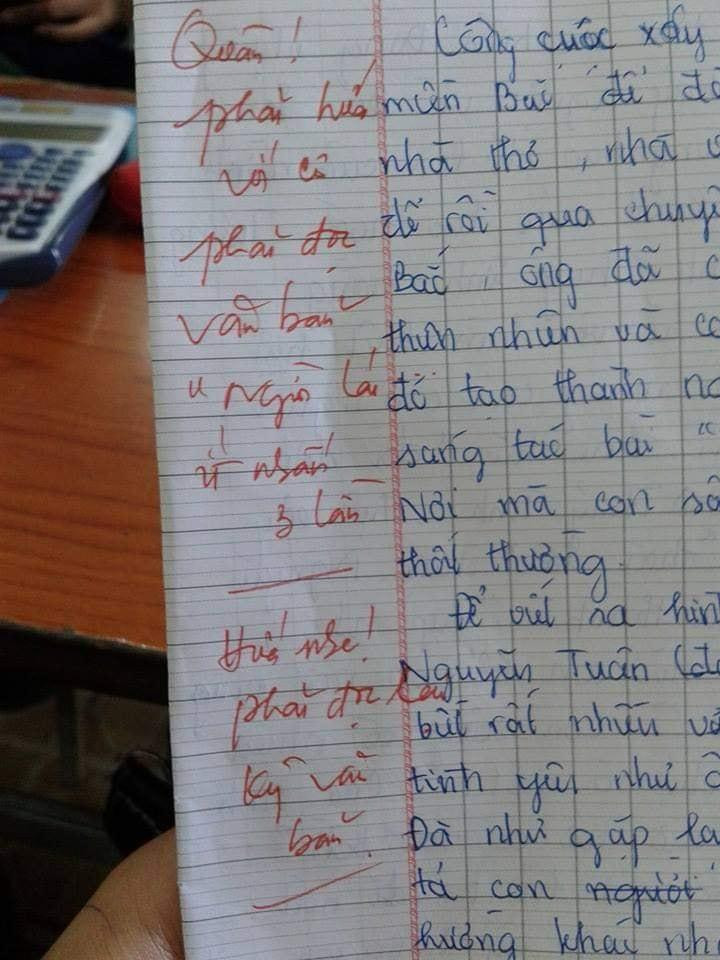 Quân!
phải hứa
với cô
phải đọc
văn bản
"Người lái
ít nhất
3 lần
Hứa nhé!
phải đọc
kỹ văn
bản.
Công cuộc xây
miền Bắc để
nhà thơ, nhà
để rồi qua
Bắc, ông đã
thiên nhiên và
đó tạo thành
sáng tác bài "
Nơi mà con
thơi thường.
Để viết ra
Nguyễn Tuân
bút rất nhiều
tình yêu như
Đà như gặp
tả con người
hướng khái